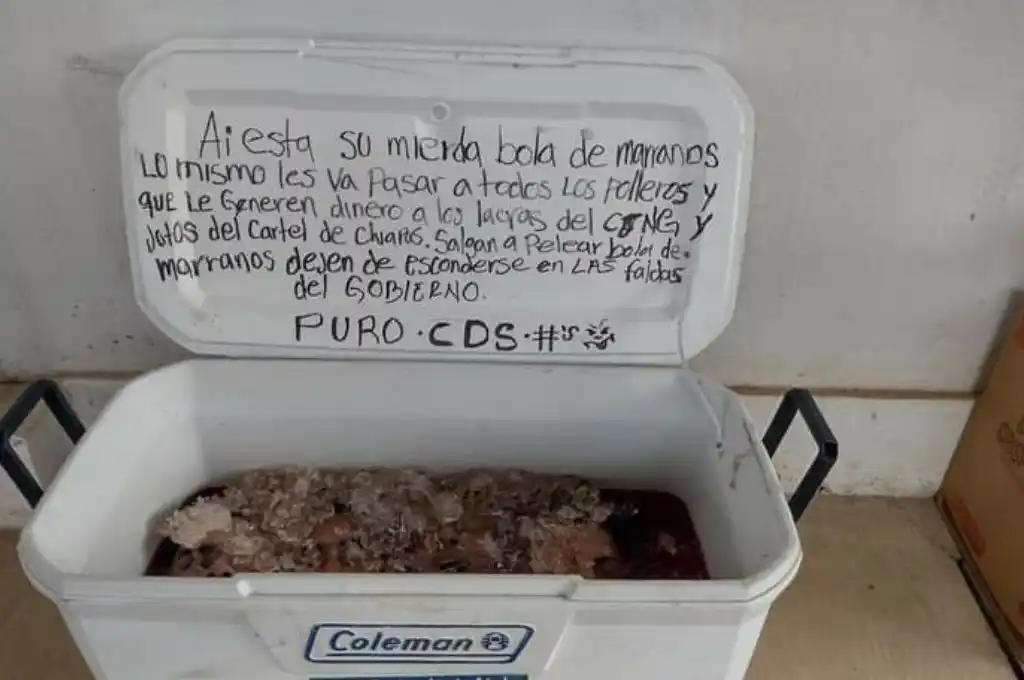 Ai esta su mierda bola de marranos
LO mismo les va Pasar a todos Los Polleros y
que Le Generen dinero a los lacras del CJNG y
Jotos del Cartel de Chiapas. Salgan a Pelear bola de.
marranos dejen de esconderse en LAS faldas
del GOBIERNO.
PURO . CDS . #
Coleman